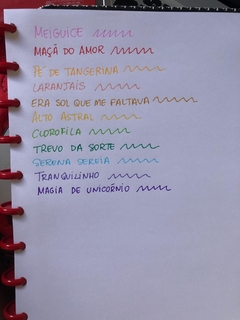 MEIGUICE
MAÇÃ DO AMOR
PÉ DE TANGERINA
LARANJAÍS
ERA SOL QUE ME FALTAVA
ALTO ASTRAL
CLOROFILA
TREVO DA SORTE
SERENA SEREIA
TRANQUILINHO
MAGIA DE UNICÓRNIO